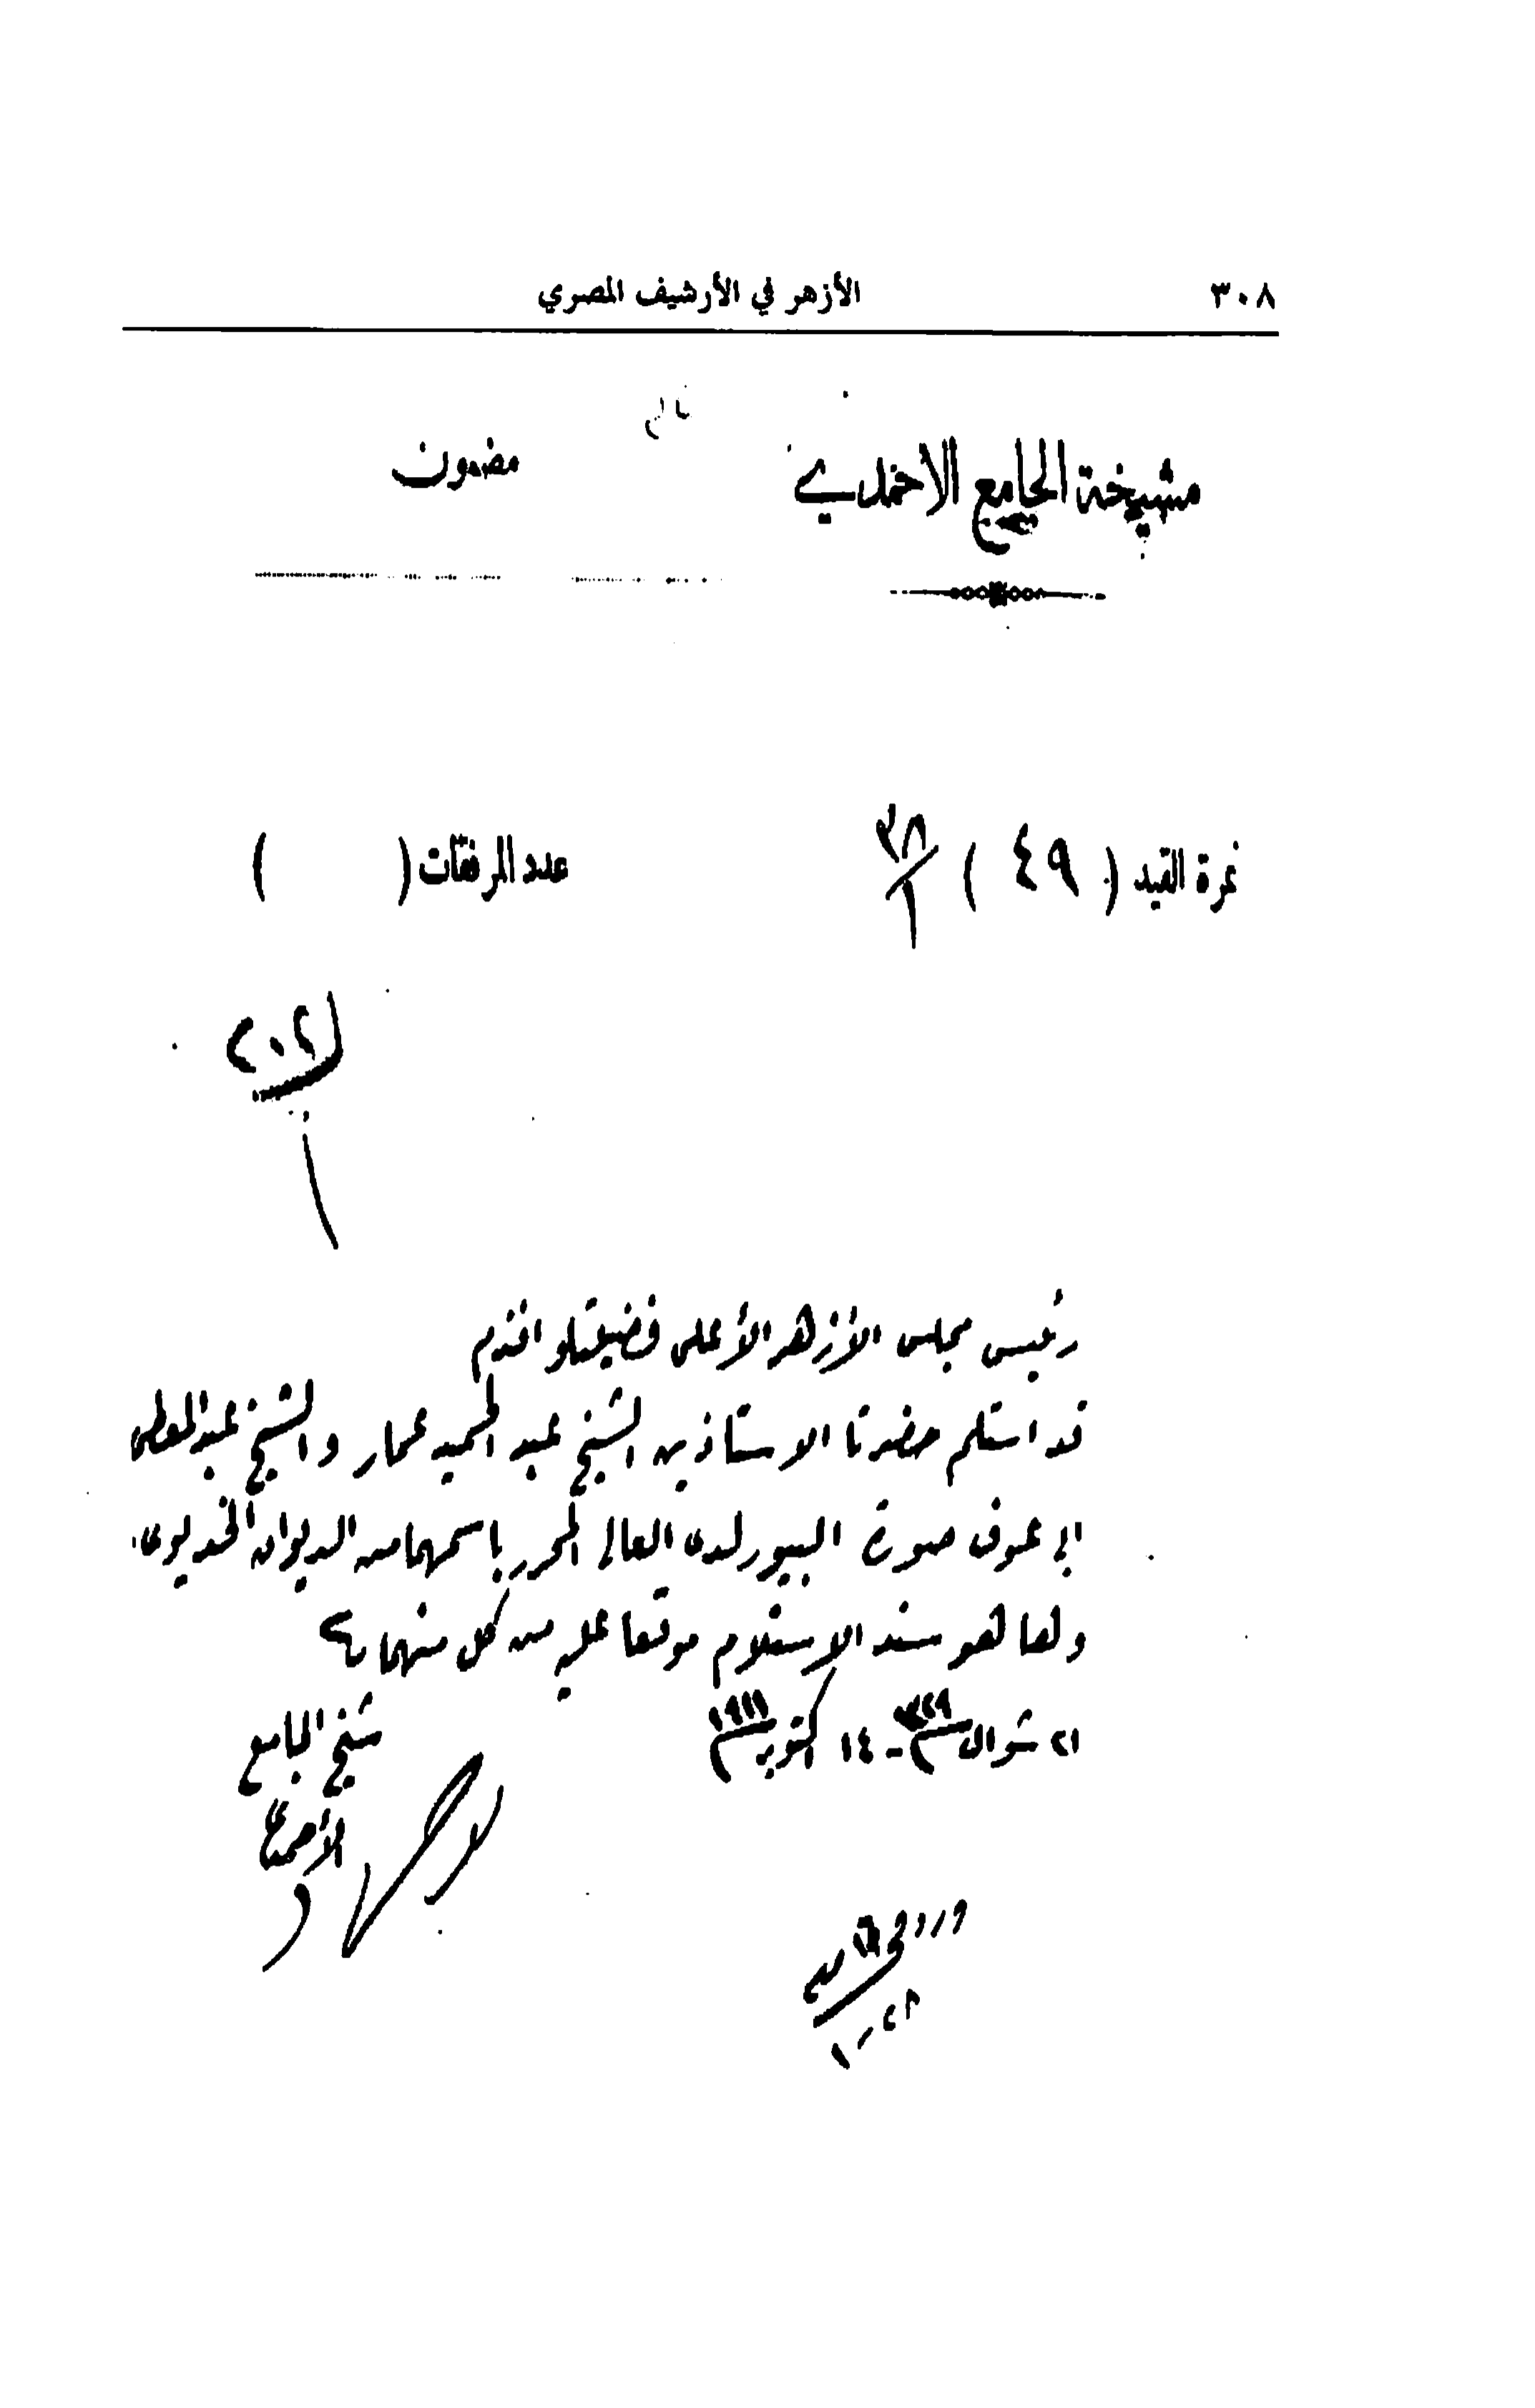 ٣٠٨ الأزهر في الأرشيف المصري
مشيخة الجامع الاحمدي
مضمون
نمرة القيد ( ٤٩ ) ٣٨/١
عدد المرفقات ( )
رئيس مجلس الأزهر الأعلى فضيلتلو افندم
قد استلم حضرتا الاستاذين الشيخ عبد الحميد عمار والشيخ عبد المعطى
ابى عوف صورة البيورلدى العالى المحرر باسمهما من الديوان الخديوى
وها هو سند الاستلام موقعا عليه من كل منهما
٢١ شوال سنة ١٣٢٩ - ١٤ اكتوبر سنة ١٩١١
شيخ الجامع
الأحمدى
ورد فى